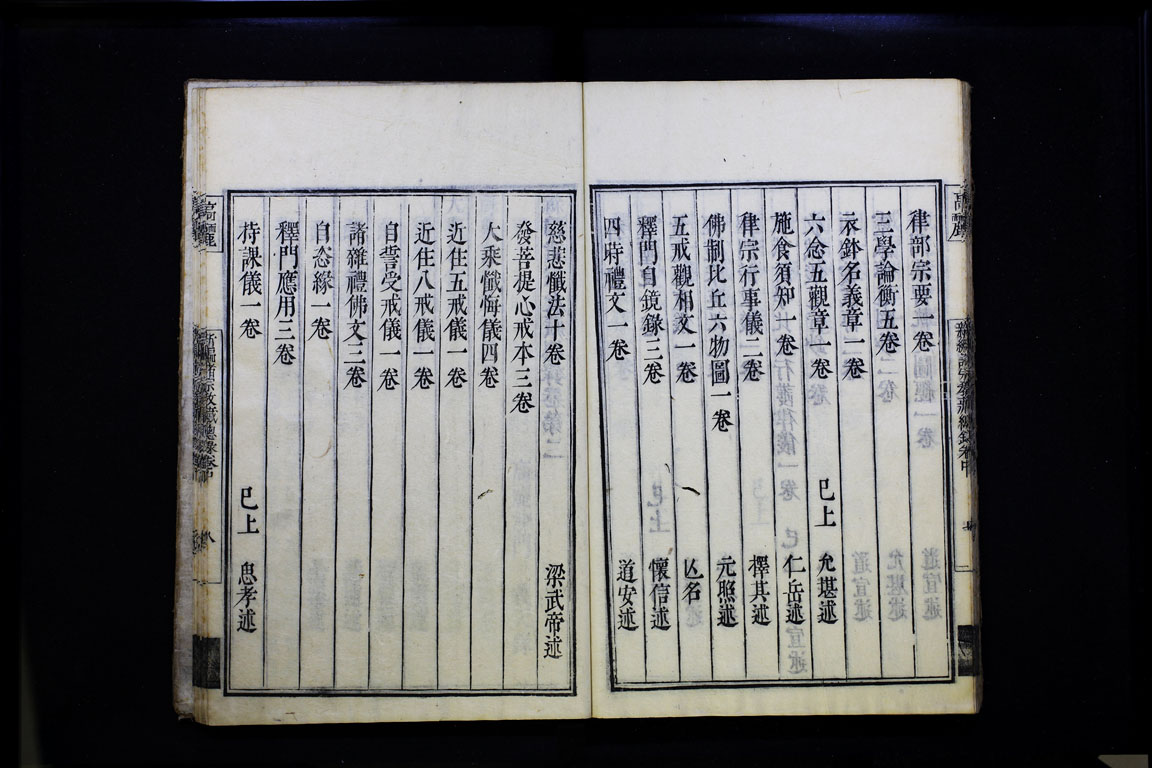 律部宗要一卷
三學論衡五卷
衣鉢名義章一卷
六念五觀章一卷 已上 允堪述
施食須知一卷 仁岳述
律宗行事儀二卷 擇其述
佛制比丘六物圖一卷 元照述
五戒觀相文一卷 亾名
釋門自鏡錄三卷 懷信述
四時禮文一卷 道安述
慈悲懺法十卷 梁武帝述
發菩提心戒本三卷
大乘懺悔儀四卷
近住五戒儀一卷
近住八戒儀一卷
自誓受戒儀一卷
諸雜禮佛文三卷
自恣緣一卷
釋門應用三卷
持課儀一卷 已上 思孝述
高麗
新編諸宗教藏總錄卷中
八